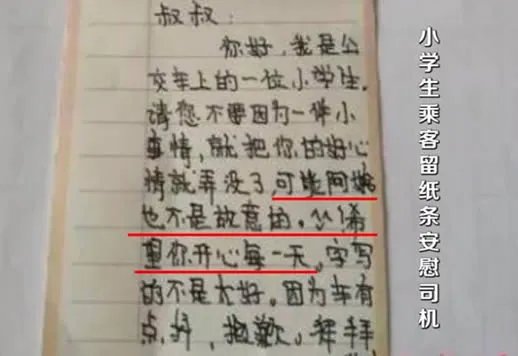 叔叔：
你好，我是公
交车上的一位小学生。
请您不要因为一件小
事情，就把你的好心
情就弄没了，可能阿姨
也不是故意的。希
望你开心每一天，字写
的不是太好。因为车有
点抖，抱歉。拜拜
小学生乘客留纸条安慰司机